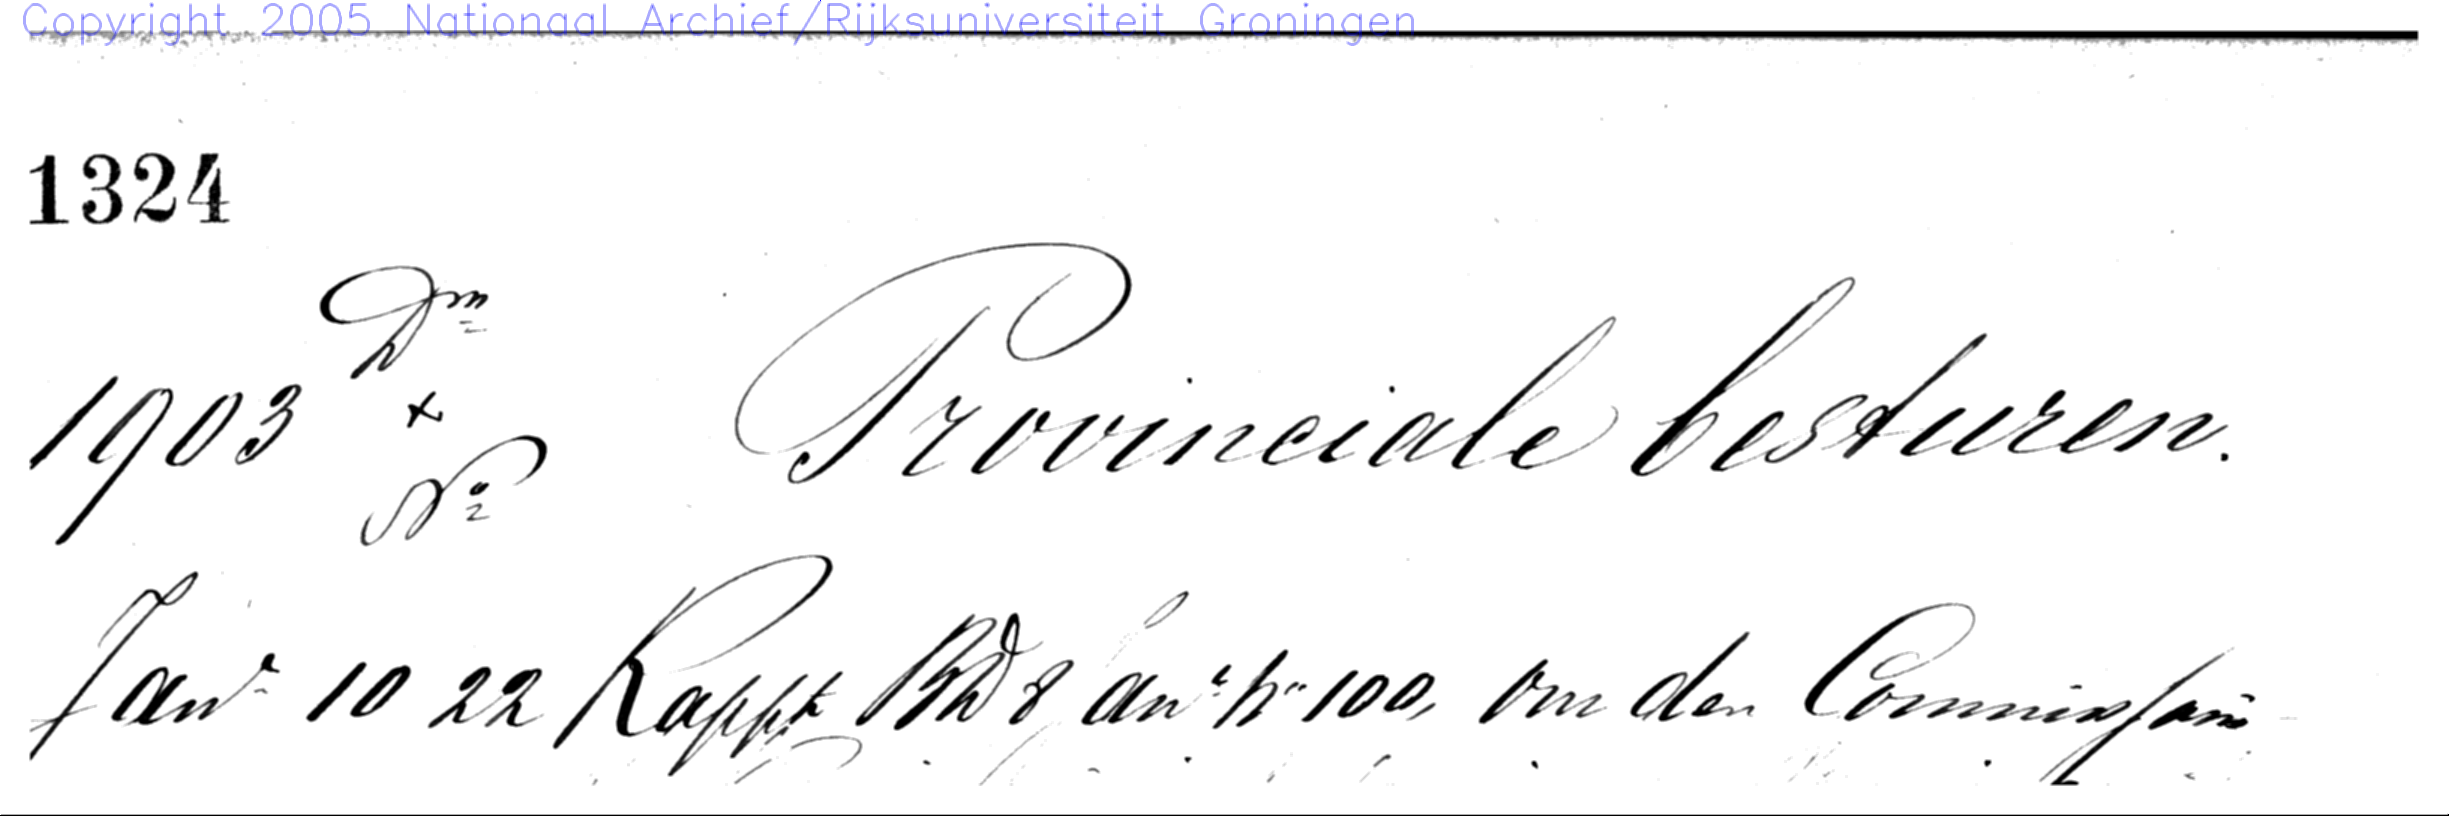 Copyright 2005 Nationaal Archief/Rijksuniversiteit Groningen
1324
Dm
1903 x Provinciale besturen.
No
Janr 10 22 Rappt BW 8 anr no 100, om den Commissaris